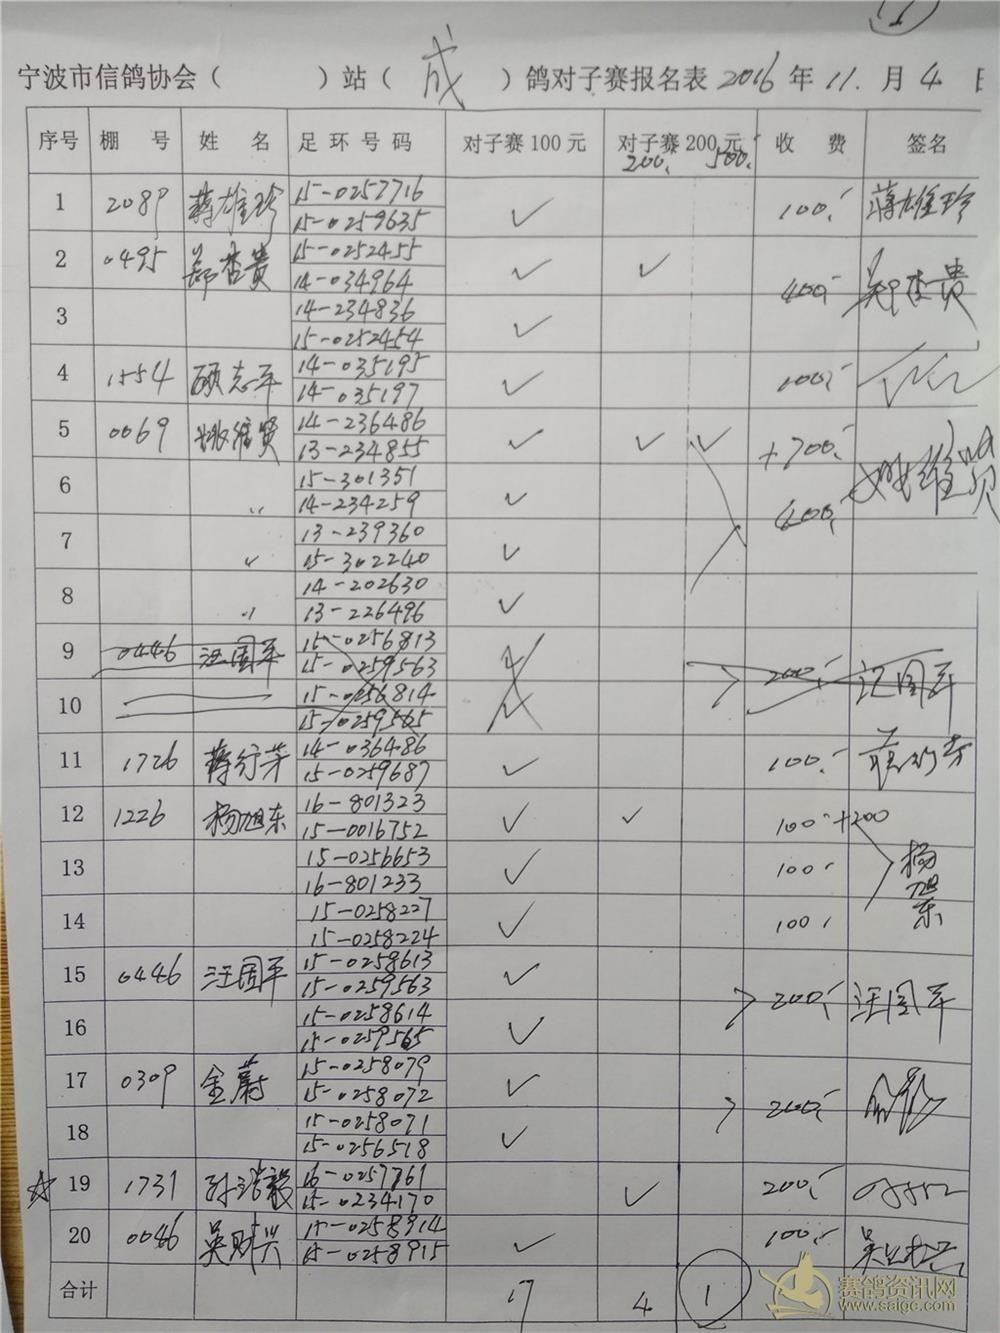 宁波市信鸽协会（ ）站（成）鸽对子赛报名表 2016年11.月4日
序号 棚号 姓名 足环号码 对子赛100元 对子赛200元 收费 签名
200. 500.
1 2089 蒋雄珍 15-0257716 ✓ 100. 蒋雄珍
15-0259635
2 0495 郑杏贵 15-0252455 ✓ ✓ 400. 郑杏贵
14-034964
3 14-234836 ✓
15-0252454
4 1554 顾志军 14-035195 ✓ 100.
14-035197
5 0069 姚维贤 14-236486 ✓ ✓ ✓ +700. 姚维贤
13-234855
6 〃 15-301351 ✓ 400.
14-234259
7 〃 13-239360 ✓
15-302240
8 〃 14-202630 ✓
13-226496
9 0446 汪国平 15-0256813 200. 汪国平
15-0259563
10 15-0256814
15-0259565
11 1726 蒋行芳 14-036486 ✓ 100. 蒋行芳
15-0259687
12 1226 杨旭东 16-801323 ✓ ✓ 100.+200 杨旭东
15-0016752
13 15-0256653 ✓ 100.
16-801233
14 15-0258227 ✓ 100.
15-0258224
15 0446 汪国平 15-0258613 ✓ 200. 汪国平
15-0259563
16 15-0258614 ✓
15-0259565
17 0309 金蔚 15-0258079 ✓ 200.
15-0258072
18 15-0258071 ✓
15-0256518
☆ 19 1731 16-0257761 ✓ 200.
15-0234170
20 0046 吴财兴 15-0258914 ✓ 100.
15-0258915
合计 17 4 1
赛鸽资讯网
www.saigc.com